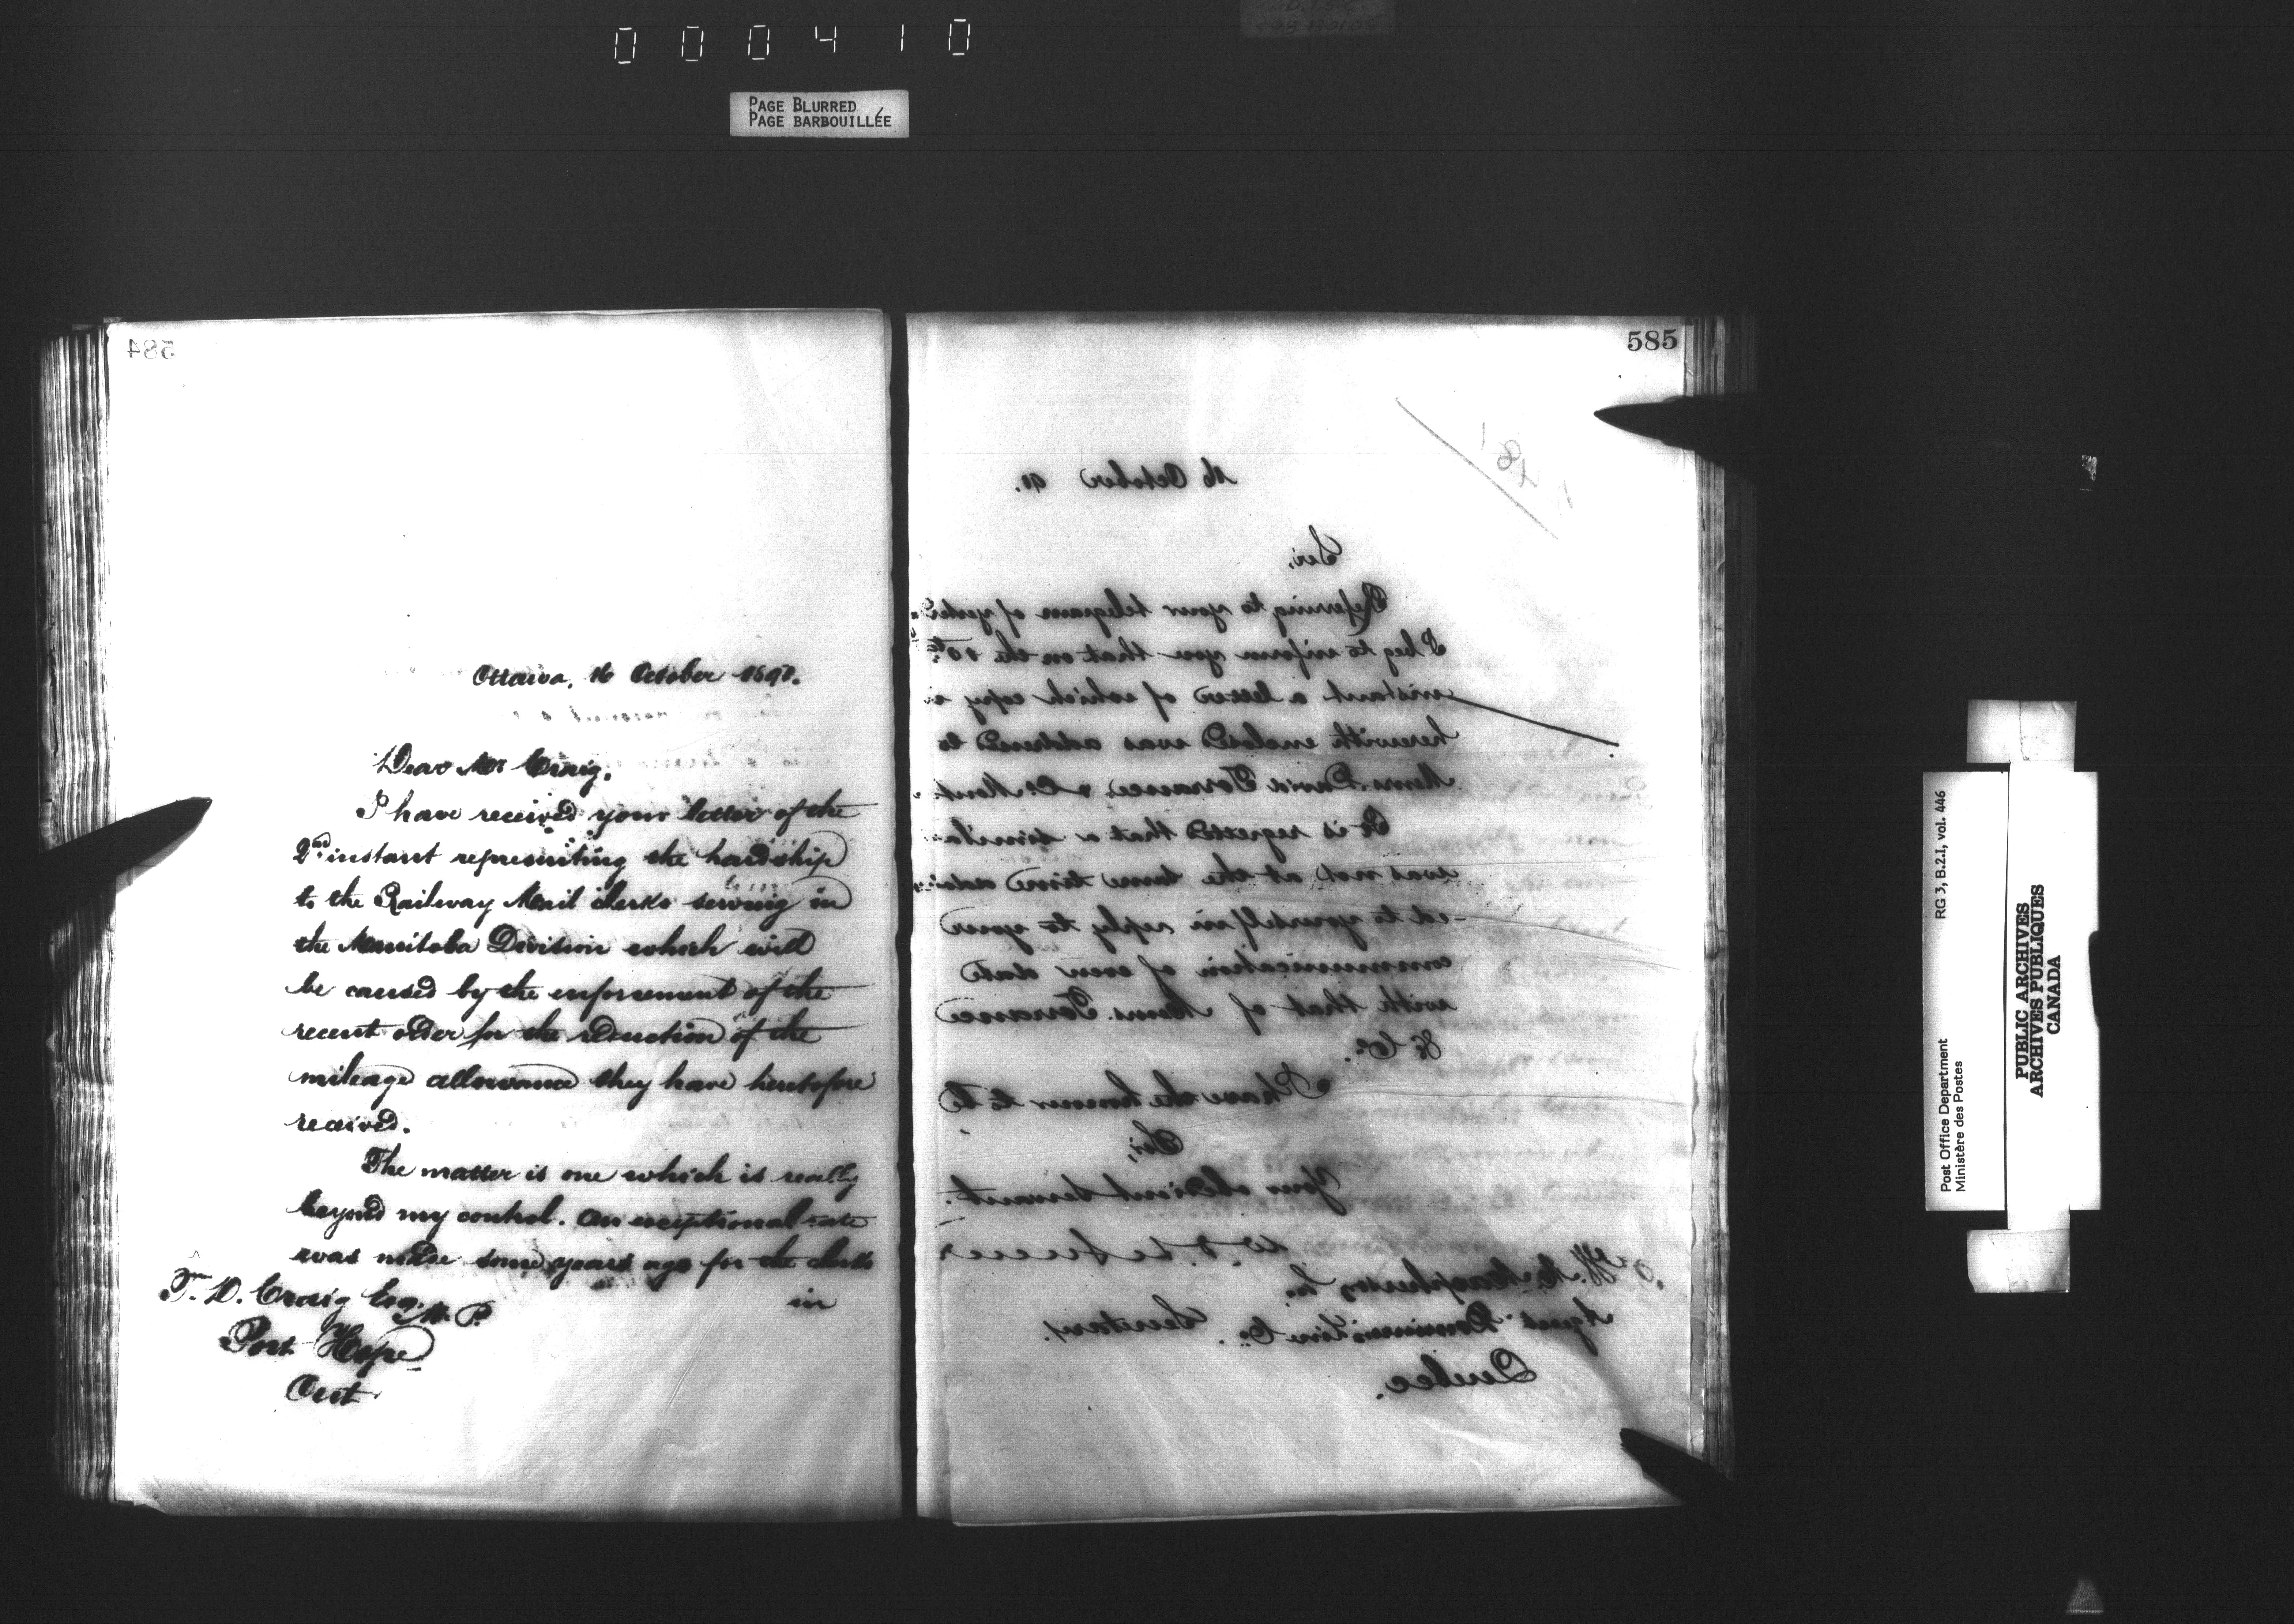 000410
PAGE BLURRED
PAGE BARBOUILLÉE
584
Ottawa, 16 October 1891.
Dear Mr Craig,
I have received your letter of the
2nd instant representing the hardship
to the Railway Mail clerks serving in
the Manitoba Division which will
be caused by the enforcement of the
recent order for the reduction of the
mileage allowance they have heretofore
received.
The matter is one which is really
beyond my control. An exceptional rate
was made some years ago for the clerks
in
T. D. Craig Esq. M.P.
Port Hope
Ont
585
16 October 91.
Sir,
Referring to your telegram of
I beg to inform you that on the 10th
instant a letter of which copy is
herewith enclosed was addressed to
Messrs. David Torrance & Co
It is regretted that a
was not at the same time
-ed to yourself in reply to your
communication of even date
with that of Messrs. Torrance
& Co.
I have the honour to be
Sir,
Your obedient Servant.
W. D. LeSueur
Secretary.
Macpherson
Agent Dominion Line Co.
Quebec.
Post Office Department
Ministère des Postes
RG 3, B.2.I, vol. 446
PUBLIC ARCHIVES
ARCHIVES PUBLIQUES
CANADA